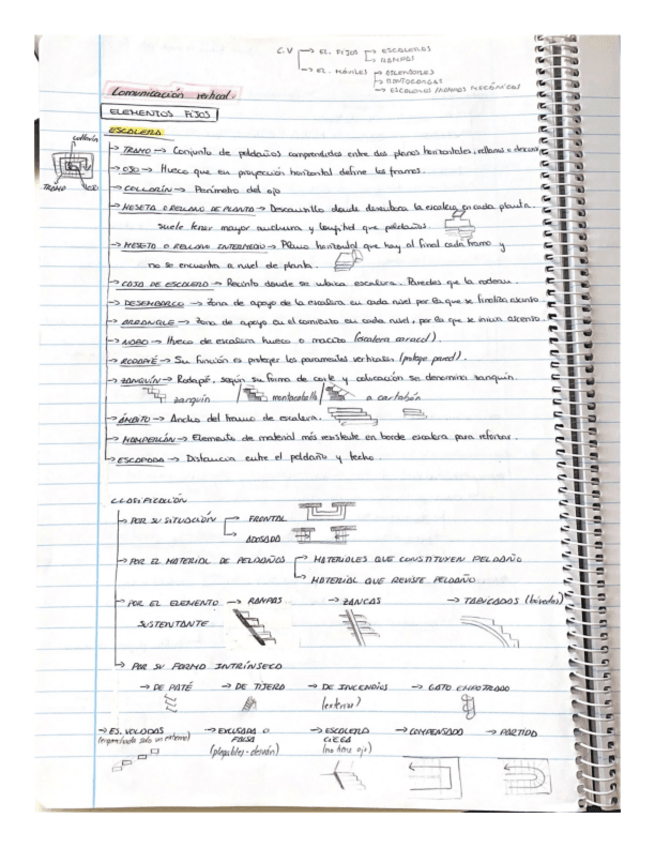 C.V → EL. FIJOS → ESCALERAS
→ RAMPAS
→ EL. MÓVILES → ASCENSORES
→ MONTACARGAS
→ ESCALERAS/RAMPAS MECÁNICAS
Comunicación vertical.
ELEMENTOS FIJOS
ESCALERA
collarín
TRAMO OJO
→ TRAMO → Conjunto de peldaños comprendidos entre dos planos horizontales, rellanos o
→ OJO → Hueco que en proyección horizontal define los tramos.
→ COLLARÍN → Perímetro del ojo
→ MESETA O RELLANO DE PLANTA → Descansillo donde desemboca la escalera en cada planta.
suele tener mayor anchura y longitud que peldaños.
→ MESETA O RELLANO INTERMEDIO → Plano horizontal que hay al final cada tramo y
no se encuentra a nivel de planta.
→ CAJA DE ESCALERA → Recinto donde se ubica escalera. Paredes que la rodean.
→ DESEMBARCO → Zona de apoyo de la escalera en cada nivel por la que se finaliza ascenso.
→ ARRANQUE → Zona de apoyo en el comienzo en cada nivel, por la que se inicia ascenso.
→ NABO → Hueco de escalera hueco o macizo (escalera caracol).
→ RODAPIÉ → Su función es proteger los paramentos verticales (protege pared).
→ ZANQUÍN → Rodapié, según su forma de corte y colocación se denomina zanquín.
zanquín / montacaballo / a cartabón
→ ÁMBITO → Ancho del tramo de escalera.
→ MAMPERLÁN → Elemento de material más resistente en borde escalera para reforzar.
→ ESCAPADA → Distancia entre el peldaño y techo.
CLASIFICACIÓN
→ POR SU SITUACIÓN → FRONTAL
→ ADOSADA
→ POR EL MATERIAL DE PELDAÑOS → MATERIALES QUE CONSTITUYEN PELDAÑO
→ MATERIAL QUE REVISTE PELDAÑO
→ POR EL ELEMENTO → RAMPAS → ZANCAS → TABICADAS (bóvedas)
SUSTENTANTE
→ POR SU FORMA INTRÍNSECA
→ DE PATÉ → DE TIJERA → DE INCENDIOS → GATO EMPOTRADO
(externa)
→ ES. VOLADAS → EXCUSADA O → ESCALERA → COMPENSADA → PARTIDA
(enganchada solo un extremo) FALSA CIEGA
(plegables - desván) (no tiene ojo)